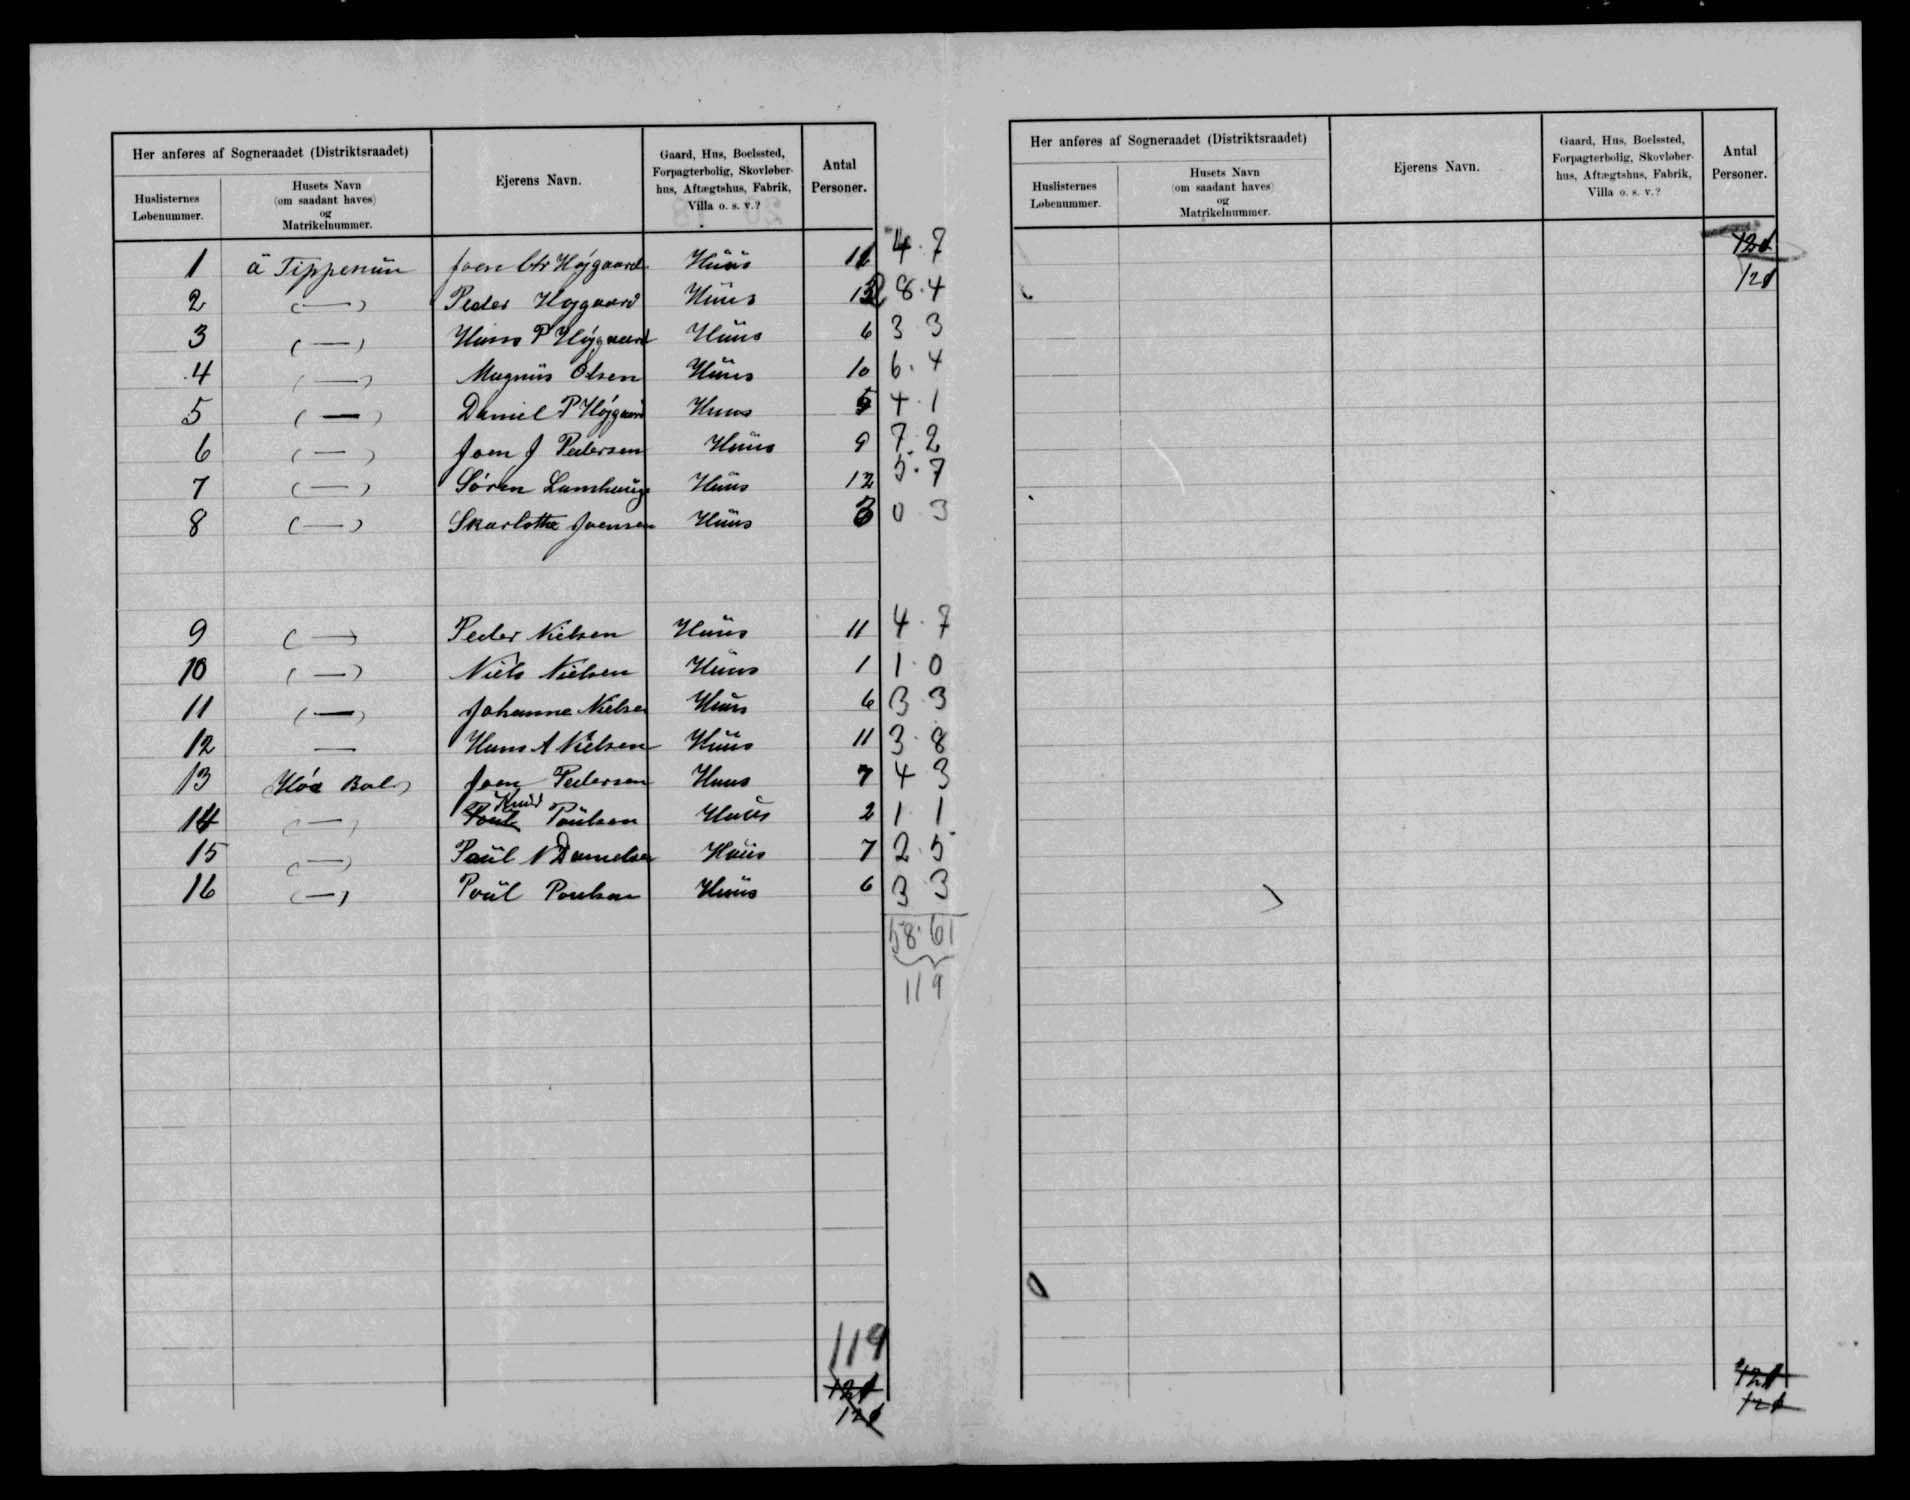 Her anføres af Sogneraadet (Distriktsraadet)
Huslisternes Løbenummer.
Husets Navn (om saadant haves) og Matrikelnummer.
Ejerens Navn.
Gaard, Hus, Boelssted, Forpagterbolig, Skovløberhus, Aftægtshus, Fabrik, Villa o. s. v.?
Antal Personer.
1 á Tippenün Joen Chr Højgaard Hüüs 11 4 . 7
2 (—) Peder Højgaard Hüüs 12 8 . 4
3 (—) Hans P Højgaard Hüüs 6 3 3
4 (—) Magnüs Olsen Hüüs 10 6 . 4
5 (—) Daniel P Højgaard Huus 5 4 . 1
6 (—) Joen J Pedersen Hüüs 9 7 . 2
7 (—) Søren Lamhauge Hüüs 12 5 . 7
8 (—) Skarlotta Joensen Hüüs 3 0 3
9 (—) Peder Nielsen Hüüs 11 4 . 7
10 (—) Niels Nielsen Hüüs 1 1 . 0
11 (—) Johanne Nielsen Huus 6 3 . 3
12 — Hans A Nielsen Hüüs 11 3 . 8
13 Joen Pedersen Huus 7 4 3
14 (—) Knud Poulsen Huus 2 1 . 1
15 (—) Paül N Danielsen Hüüs 7 2 . 5
16 (—) Poül Poulsen Hüüs 6 3 . 3
58 . 61
119
119
121
121
Her anføres af Sogneraadet (Distriktsraadet)
Huslisternes Løbenummer.
Husets Navn (om saadant haves) og Matrikelnummer.
Ejerens Navn.
Gaard, Hus, Boelssted, Forpagterbolig, Skovløberhus, Aftægtshus, Fabrik, Villa o. s. v.?
Antal Personer.
121
121
121